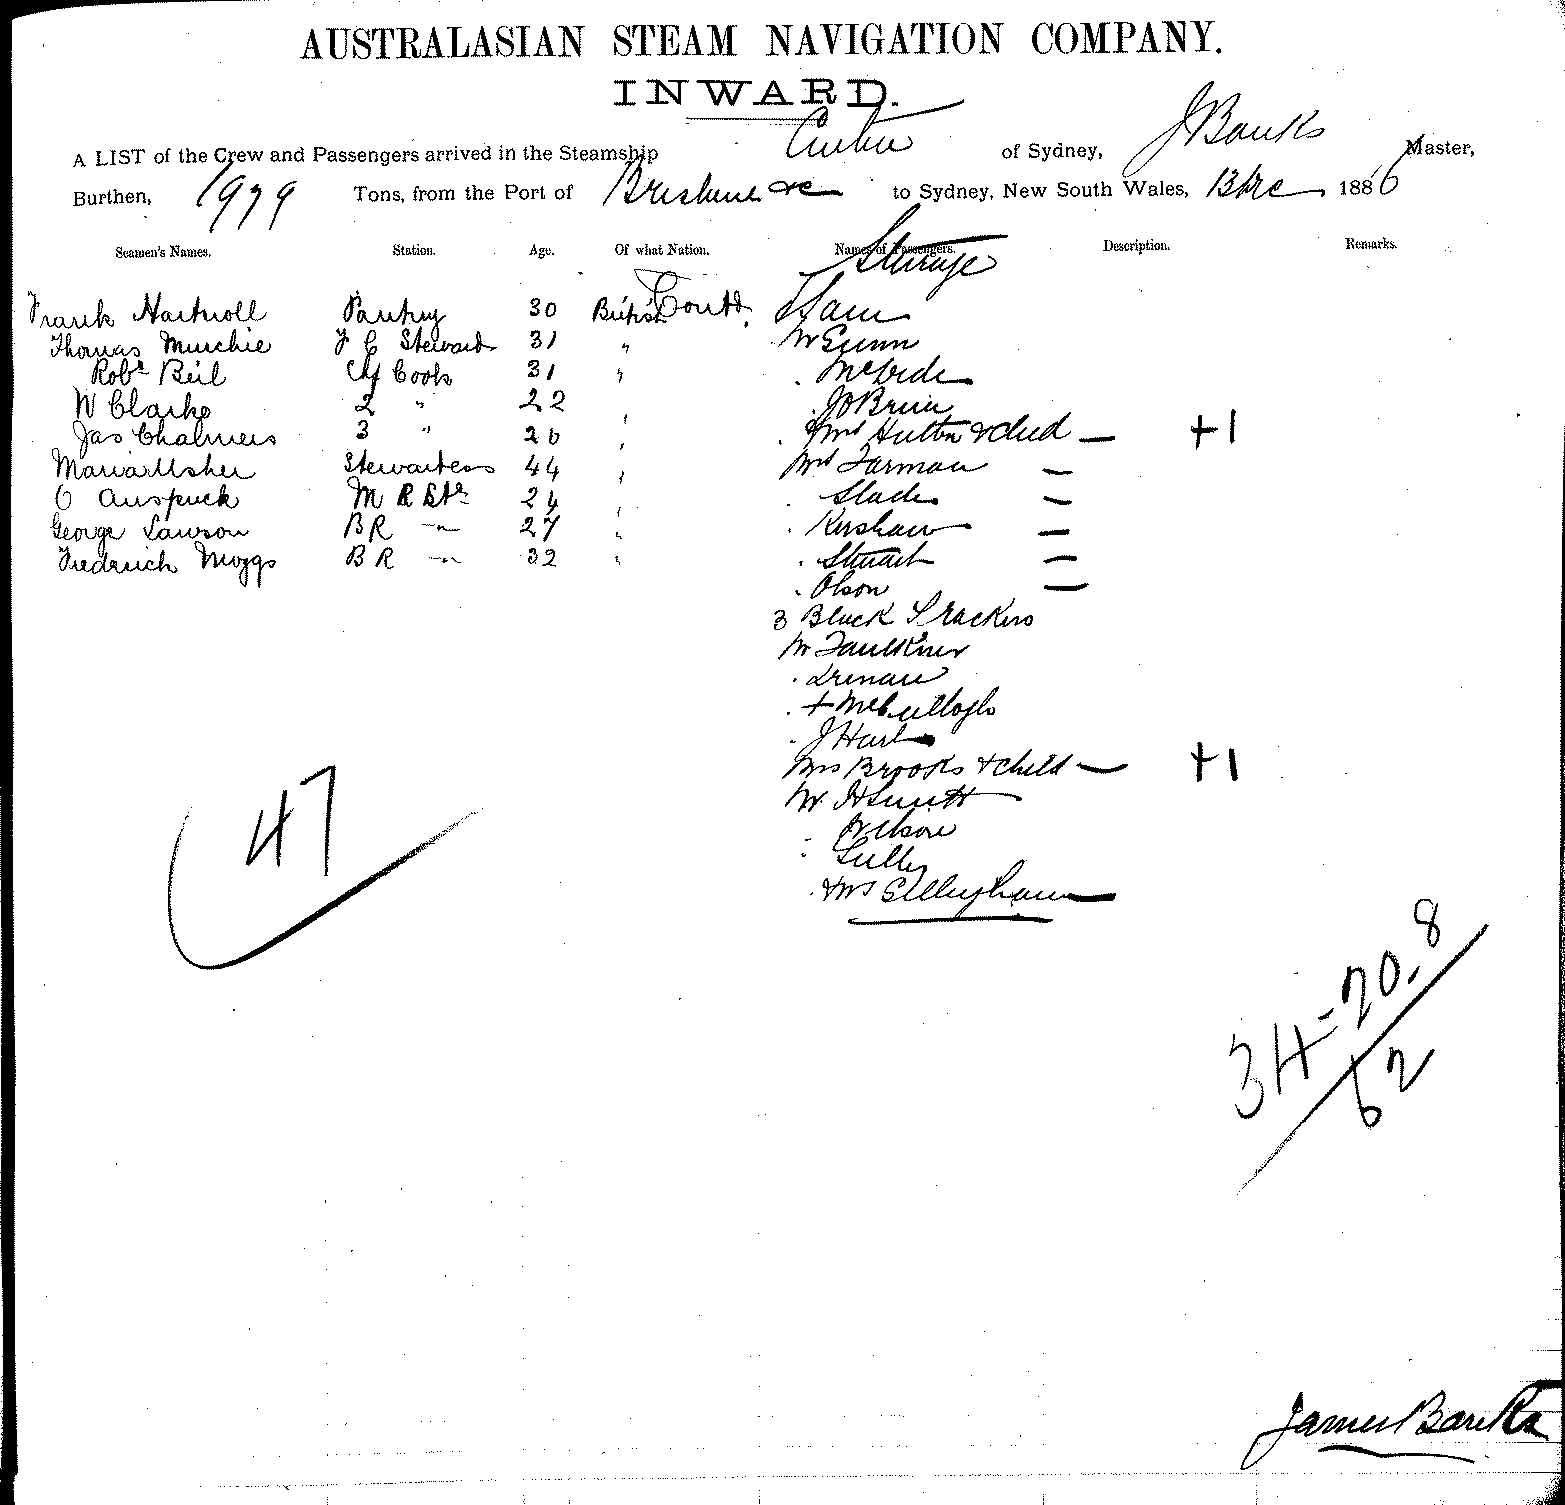 AUSTRALASIAN STEAM NAVIGATION COMPANY.
INWARD.
A LIST of the Crew and Passengers arrived in the Steamship of Sydney, J Banks Master,
Burthen, 1979 Tons, from the Port of Brisbane &c to Sydney, New South Wales, 13 Dec 1886
Seamen's Names. Station. Age. Of what Nation. Names of Passengers. Description. Remarks.
Steerage
Contd
Frank Hartnoll Pantry 30 British
Thomas Murchie F C Steward 31 "
Robt Beil Chf Cook 31 "
W Clarke 2 " 22 "
Jas Chalmers 3 " 26 "
Maria Usher Stewardess 44 "
O Auspuck M R Std 24 "
George Lawson B R -"- 27 "
Fredrick Moggs B R -"- 32 "
Mr Gunn
McBride
J O Brien
Mrs Hutton & child — +1
Mrs Farman —
Slade —
Kershaw —
Stuart —
Olson —
3 Black Trackers
Mr Faulkner
Drenan
+ McCullogh
J Hart
Mrs Brooks & child — +1
Mr H Smith
Wilson
Lilley
+ Mrs Gillingham —
47
34 = 20.8
62
James Banks